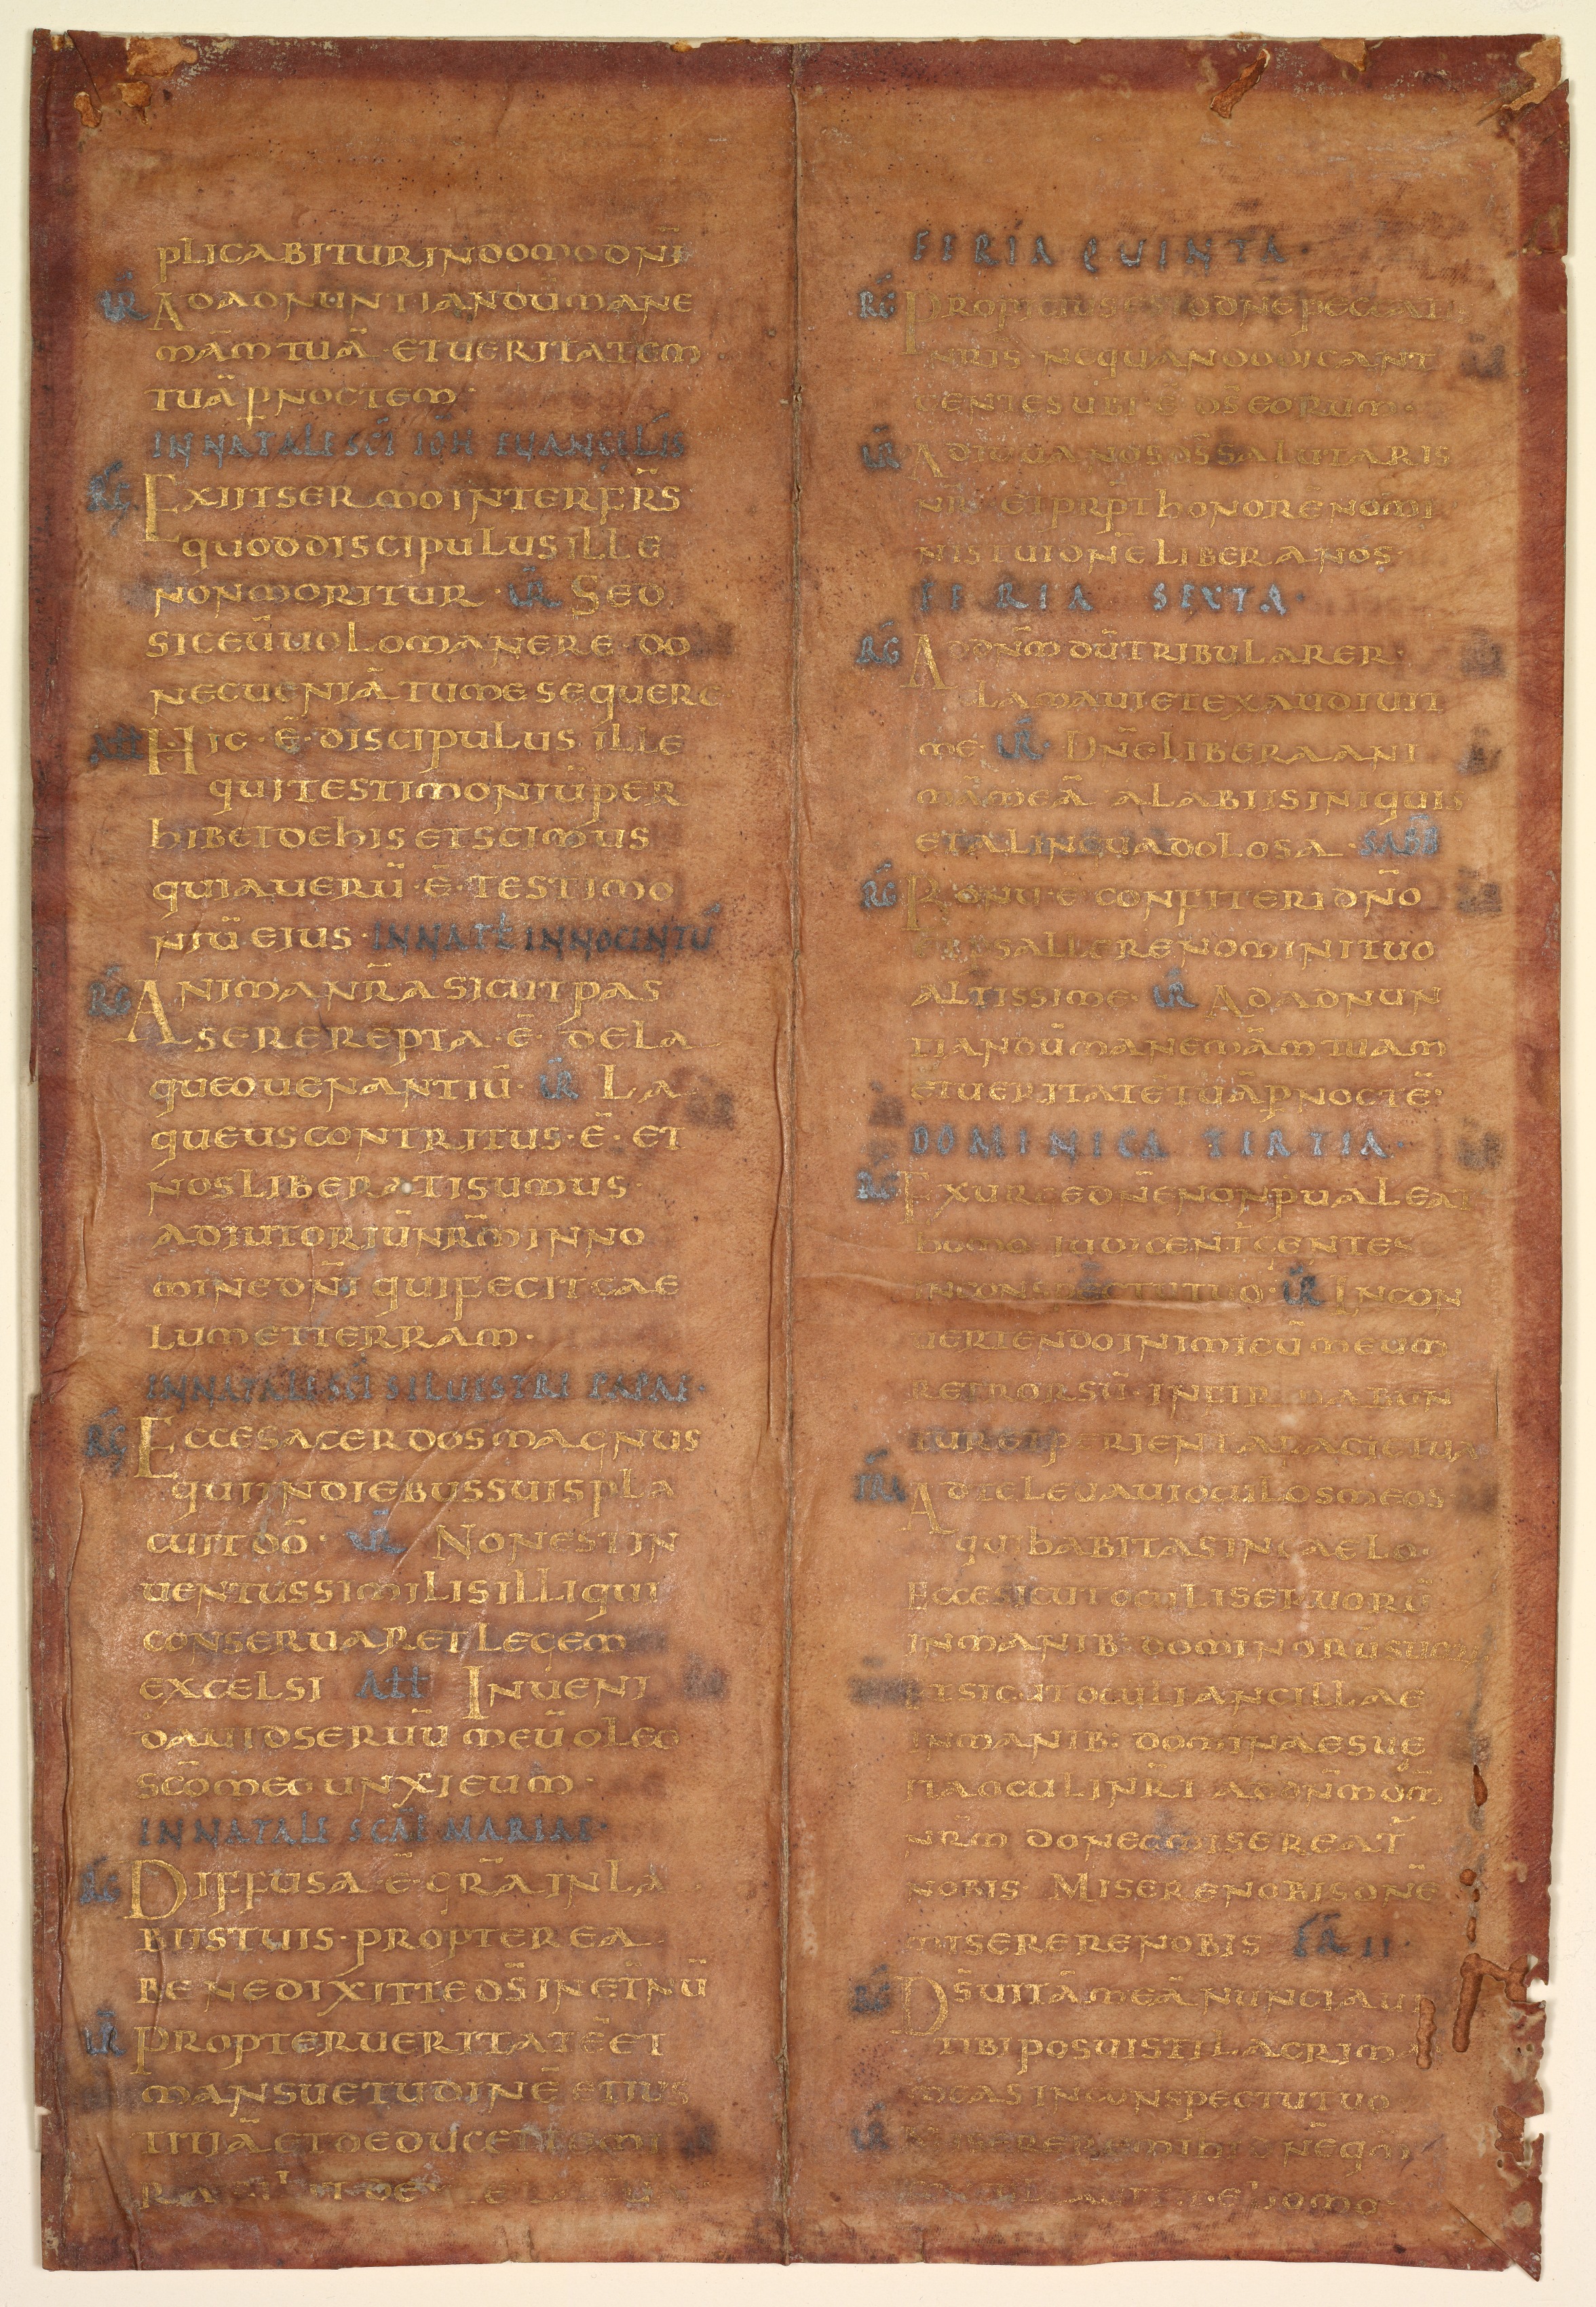 plicabitur in domo dnī
ūR Ad adnuntiandū mane
mām tuā · et ueritatem
tuā p noctem ·
IN NATALE SCI IOH EUANGELIS
RG Exiit sermo inter frs
quod discipulus ille
non moritur · ūR Sed
sic eū uolo manere · do
nec ueniā tu me sequere
ALL Hic · ē · discipulus ille
qui testimoniū per
hibet de his et scimus
quia uerū · ē · testimo
niū eius · IN NATL INNOCENTŪ
RG Anima nrā sicut pas
ser erepta · ē · de la
queo uenantiū · ūR La
queus contritus · ē · et
nos liberati sumus ·
adiutoriū nrm in no
mine dnī qui fecit cae
lum et terram ·
IN NATALE SCI SILUESTRI PAPAE ·
RG Ecce sacerdos magnus
qui in diebus suis pla
cuit dō · ūR Non est in
uentus similis illi qui
conseruaret legem
excelsi ALL Inueni
dauid seruū meū oleo
scō meo unxi eum ·
IN NATALE SCAE MARIAE ·
RG Diffusa · ē · grā in la
biis tuis · propterea
benedixit te ds̄ in etnū
ūR Propter ueritatē et
mansuetudinē et ius
titiā et deducet te mi
FERIA QUINTA ·
RG Propitius esto dnē peccati
nris · nequando dicant
gentes ubi · ē · ds̄ eorum ·
ūR Adiuua nos ds̄ salutaris
nr̄ · et prpt honore nomi
nis tui dnē libera nos ·
FERIA SEXTA ·
RG Ad dnm dū tribularer
clamaui et exaudiuit
me · ūR · Dnē libera ani
mā meā a labiis iniquis
et a lingua dolosa · SABB
RG Bonū · ē · confiteri dnō
et psallere nomini tuo
altissime · ūR Ad adnun
tiandū mane mām tuam
et ueritatē tuā p noctē ·
DOMINICA TERTIA ·
RG Exurge dnē non pualeat
homo iudicent gentes
in conspectu tuo · ūR In con
uertendo inimicū meum
retrorsū · infirmabun
tur et perient a facie tua
TRA Ad te leuaui oculos meos
qui habitas in caelo ·
Ecce sicut oculi seruorū
in manib: dominorū suorū
et sicut oculi ancillae
in manib: dominae sue
ita oculi nri ad dnm dm
nrm donec misereat
nobis · Miserere nobis dnē
miserere nobis FR II ·
RG Ds̄ uitā meā nunciaui
tibi posuisti lacrimas
meas in conspectu tuo
ūR Miserere mihi dnē qm
homo